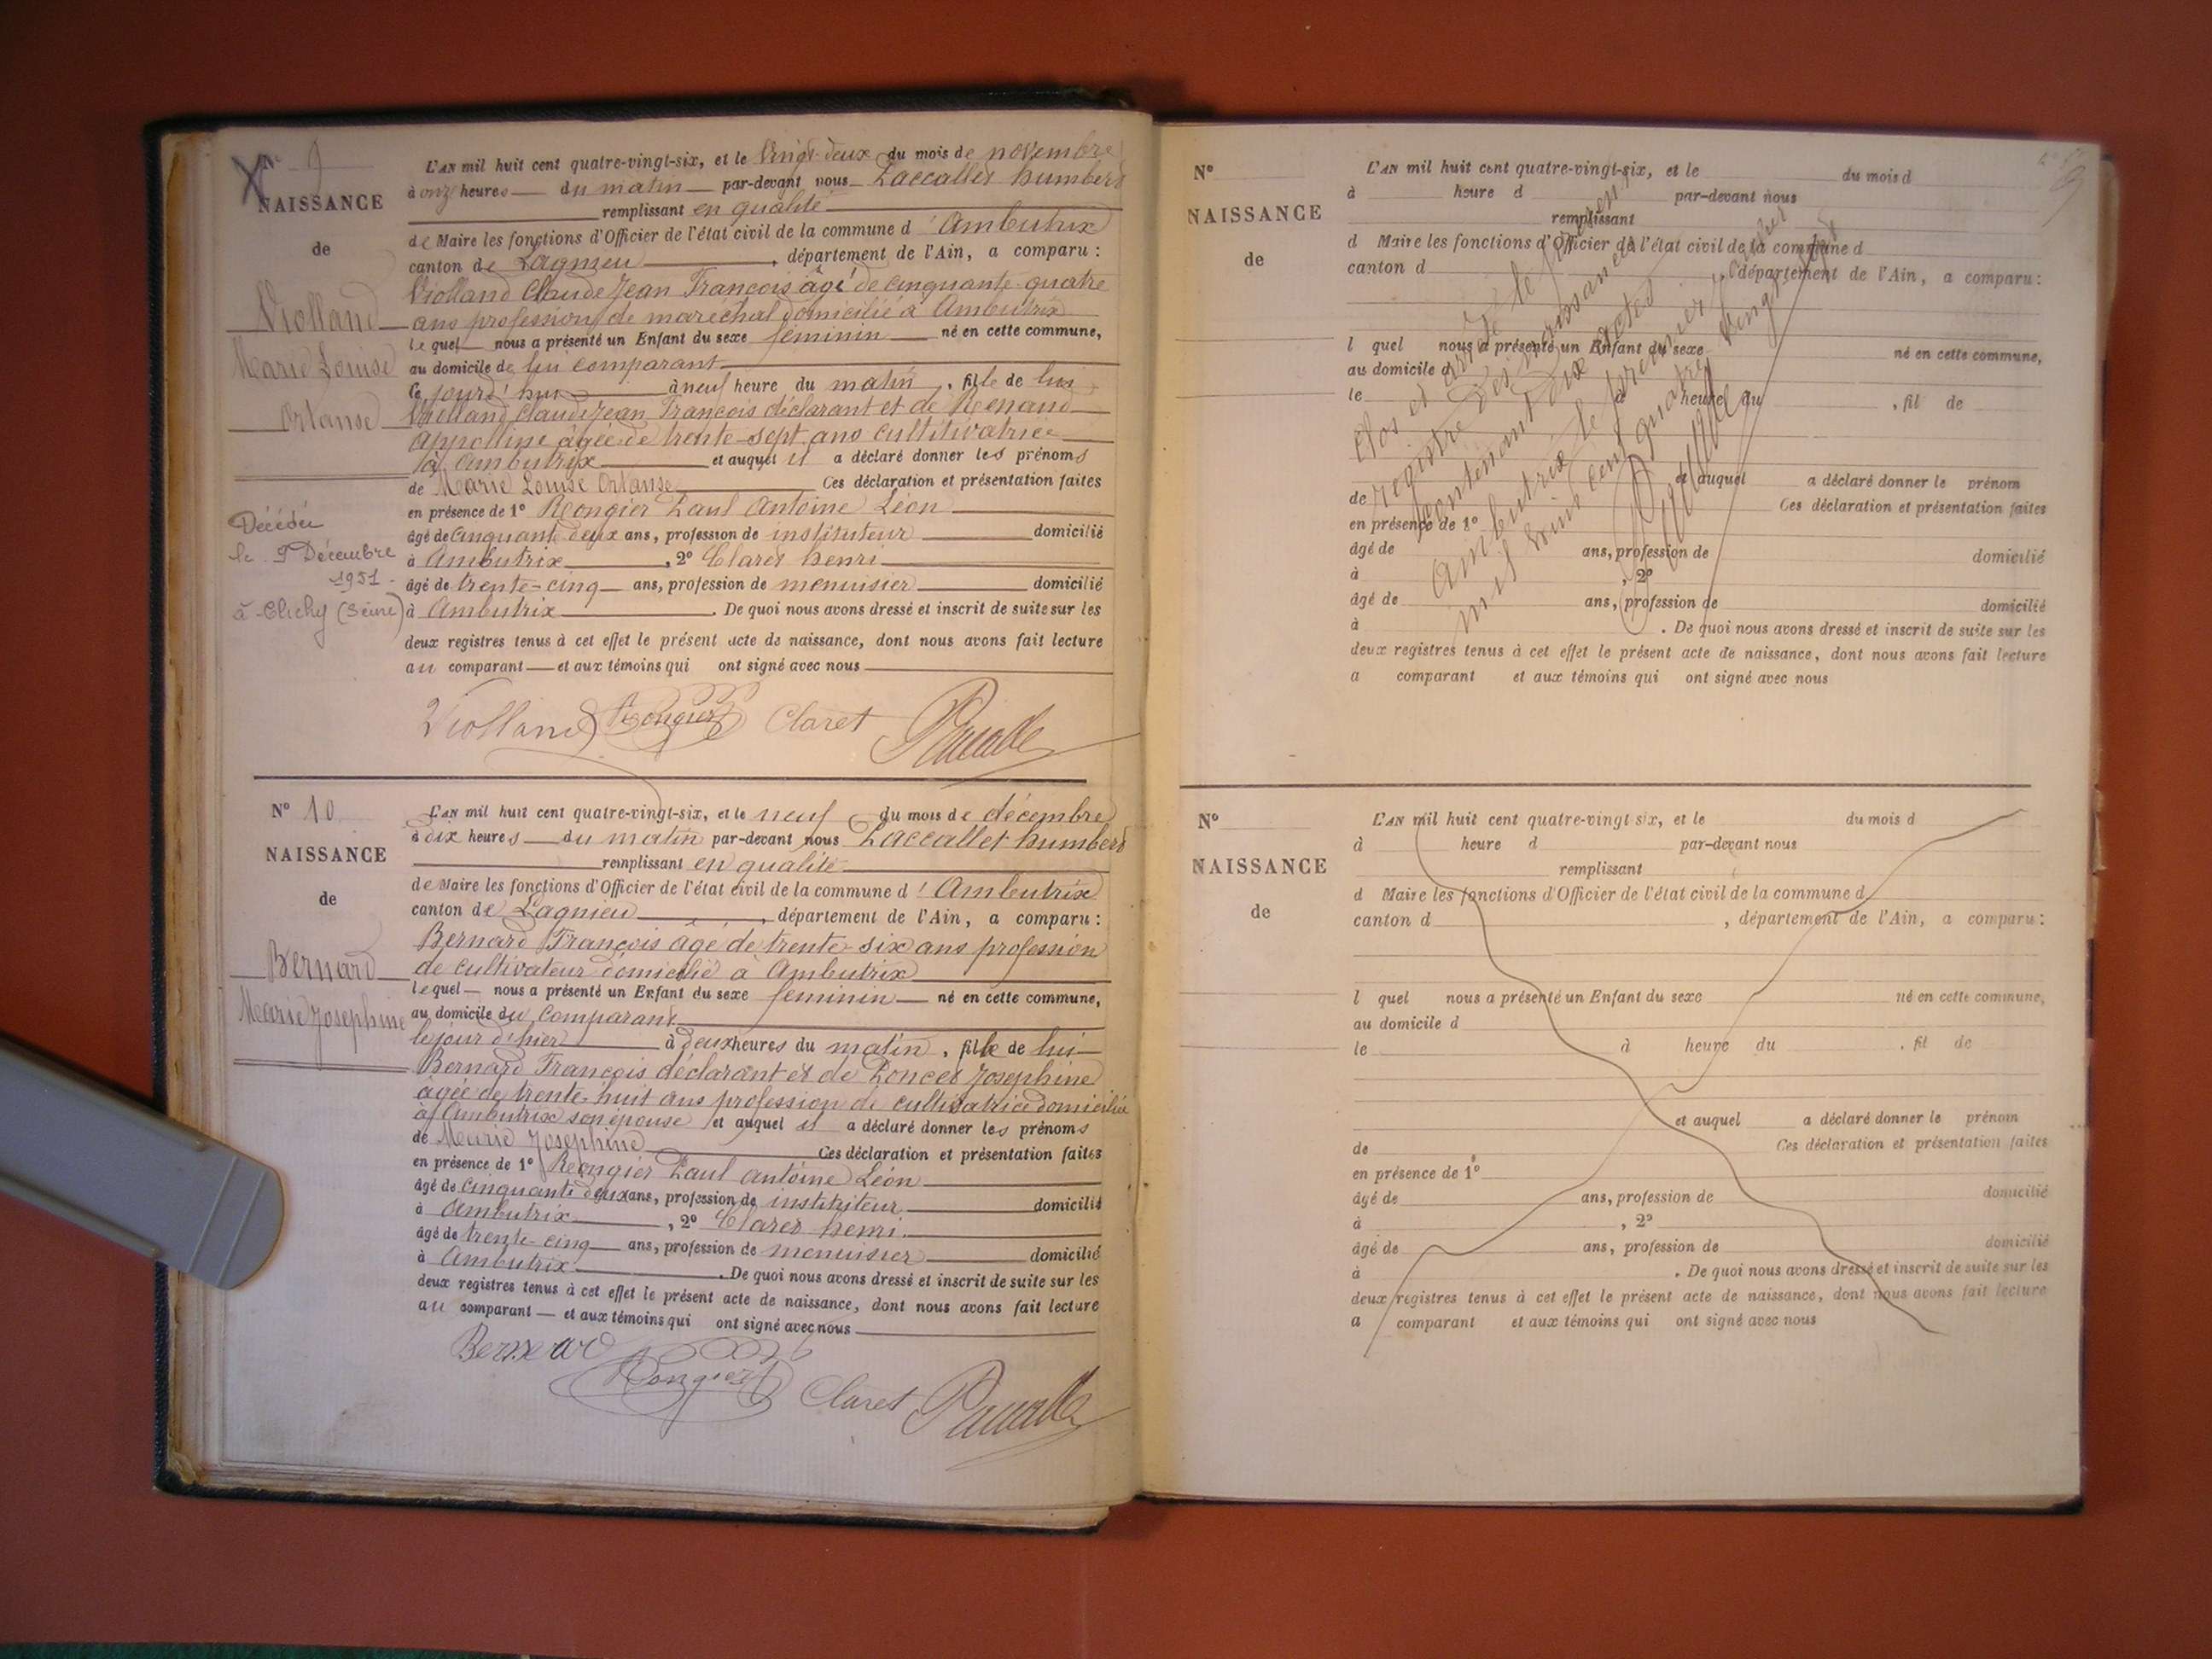 N° 9
NAISSANCE
de
Violland
Marie Louise
Ortanse
Décédée
le 9 Décembre
1951
à Clichy (Seine)
L'AN mil huit cent quatre-vingt-six, et le vingt-deux du mois de novembre
à onze heures du matin par-devant nous Humbert
remplissant en qualité
de Maire les fonctions d'Officier de l'état civil de la commune d'Ambutrix
canton de Lagnieu, département de l'Ain, a comparu :
Violland Claude Jean François âgé de cinquante-quatre
ans profession de maréchal domicilié à Ambutrix
lequel nous a présenté un Enfant du sexe féminin né en cette commune,
au domicile de lui comparant
le jourd'hui à neuf heure du matin, fille de lui
Violland Claude Jean François déclarant et de Renaud
Appolline âgée de trente-sept ans cultitivatrice
à Ambutrix et auquel il a déclaré donner les prénoms
de Marie Louise Ortanse Ces déclaration et présentation faites
en présence de 1° Rongier Paul Antoine Léon
âgé de cinquante deux ans, profession de instituteur domicilié
à Ambutrix, 2° Claret henri
âgé de trente-cinq ans, profession de menuisier domicilié
à Ambutrix. De quoi nous avons dressé et inscrit de suite sur les
deux registres tenus à cet effet le présent acte de naissance, dont nous avons fait lecture
au comparant et aux témoins qui ont signé avec nous
Violland Rongier Claret
N° 10
NAISSANCE
de
Bernard
Marie Josephine
L'AN mil huit cent quatre-vingt-six, et le neuf du mois de décembre
à dix heures du matin par-devant nous humbert
remplissant en qualité
de Maire les fonctions d'Officier de l'état civil de la commune d'Ambutrix
canton de Lagnieu, département de l'Ain, a comparu :
Bernard François âgé de trente-six ans profession
de cultivateur domicilié à Ambutrix
lequel nous a présenté un Enfant du sexe féminin né en cette commune,
au domicile du comparant
le jour d'hier à deux heures du matin, fille de lui
Bernard François déclarant et de Poncet Josephine
âgée de trente-huit ans profession de cultivatrice domiciliée
à Ambutrix son épouse et auquel il a déclaré donner les prénoms
de Marie Josephine Ces déclaration et présentation faites
en présence de 1° Rongier Paul antoine Léon
âgé de cinquante deux ans, profession de instituteur domicilié
à Ambutrix, 2° Claret henri
âgé de trente-cinq ans, profession de menuisier domicilié
à Ambutrix. De quoi nous avons dressé et inscrit de suite sur les
deux registres tenus à cet effet le présent acte de naissance, dont nous avons fait lecture
au comparant et aux témoins qui ont signé avec nous
Bernard
Rongier Claret
N°
NAISSANCE
de
L'AN mil huit cent quatre-vingt-six, et le du mois d
à heure d par-devant nous
remplissant
d Maire les fonctions d'Officier de l'état civil de la commune d
canton d , département de l'Ain, a comparu :
l quel nous a présenté un Enfant du sexe né en cette commune,
au domicile d
le à heure du , fil de
et auquel a déclaré donner le prénom
de Ces déclaration et présentation faites
en présence de 1°
âgé de ans, profession de domicilié
à , 2°
âgé de ans, profession de domicilié
à . De quoi nous avons dressé et inscrit de suite sur les
deux registres tenus à cet effet le présent acte de naissance, dont nous avons fait lecture
a comparant et aux témoins qui ont signé avec nous
Clos et arrêté le présent
registre des naissances
contenant dix actes
Ambutrix le premier janvier
mil huit cent quatre vingt sept
N°
NAISSANCE
de
L'AN mil huit cent quatre-vingt six, et le du mois d
à heure d par-devant nous
remplissant
d Maire les fonctions d'Officier de l'état civil de la commune d
canton d , département de l'Ain, a comparu :
l quel nous a présenté un Enfant du sexe né en cette commune,
au domicile d
le à heure du , fil de
et auquel a déclaré donner le prénom
de Ces déclaration et présentation faites
en présence de 1°
âgé de ans, profession de domicilié
à , 2°
âgé de ans, profession de domicilié
à . De quoi nous avons dressé et inscrit de suite sur les
deux registres tenus à cet effet le présent acte de naissance, dont nous avons fait lecture
a comparant et aux témoins qui ont signé avec nous